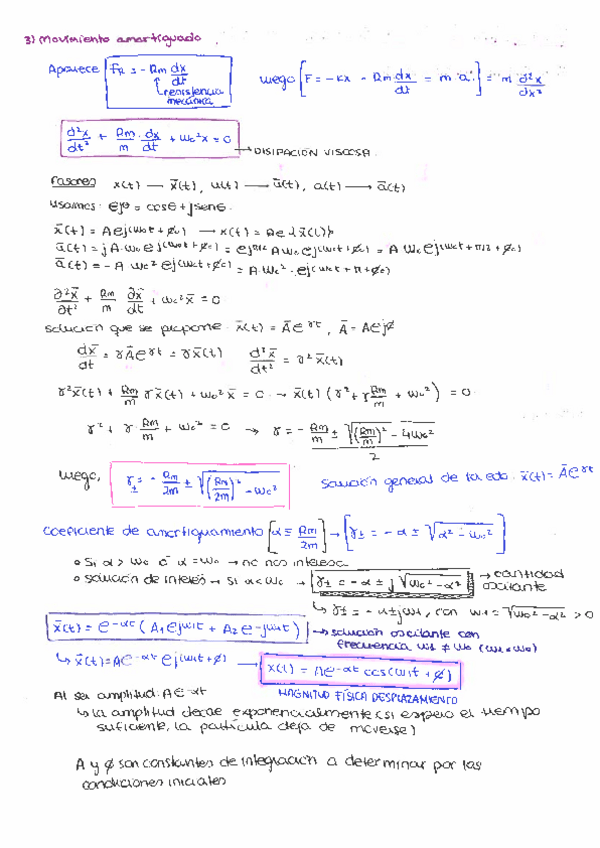 3) Movimiento amortiguado
Aparece F_R = -Rm dx/dt
↳ resistencia mecánica
luego [F = -kx - Rm dx/dt = m·a] = m d²x/dx²
d²x/dt² + Rm/m · dx/dt + ω₀²x = 0 → DISIPACIÓN VISCOSA.
Fasores x(t) — x̄(t), u(t) → ū(t), a(t) → ā(t)
Usamos: e^jθ = cosθ + jsenθ.
x̄(t) = A e^j(ω₀t + φ₀) → x(t) = Re{x̄(t)}
ū(t) = j A·ω₀ e^j(ω₀t + φ₀) = e^jπ/2 Aω₀ e^j(ω₀t + φ₀) = A ω₀ e^j(ω₀t + π/2 + φ₀)
ā(t) = -A ω₀² e^j(ω₀t + φ₀) = A·ω₀²·e^j(ω₀t + π + φ₀)
∂²x̄/∂t² + Rm/m ∂x̄/dt + ω₀² x̄ = 0
solución que se propone: x̄(t) = Ā e^γt, Ā = A e^jφ
dx̄/dt = γ Ā e^γt = γ x̄(t) d²x̄/dt² = γ² x̄(t)
γ² x̄(t) + Rm/m γ x̄(t) + ω₀² x̄ = 0 → x̄(t) (γ² + γ Rm/m + ω₀²) = 0
γ² + γ·Rm/m + ω₀² = 0 → γ = - Rm/m ± √((Rm/m)² - 4ω₀²) / 2
luego, γ± = - Rm/2m ± √((Rm/2m)² - ω₀²) solución general de la edo: x̄(t) = Ā e^γt
coeficiente de amortiguamiento [α ≡ Rm/2m] → [γ± = -α ± √(α² - ω₀²)]
• Si α > ω₀ ó α = ω₀ → no nos interesa.
• solución de interés → Si α < ω₀ → γ± = -α ± j √(ω₀² - α²) → cantidad oscilante
↳ γ± = -α ± jω₁, con ω₁ = √(ω₀² - α²) > 0
x̄(t) = e^-αt (A₁ e^jω₁t + A₂ e^-jω₁t) → solución oscilante con
frecuencia ω₁ ≠ ω₀ (ω₁ < ω₀)
↳ x̄(t) = A e^-αt e^j(ω₁t + φ) → x(t) = A e^-αt cos(ω₁t + φ)
Al ser amplitud: A e^-αt MAGNITUD FÍSICA DESPLAZAMIENTO
↳ la amplitud decae exponencialmente (si espero el tiempo
suficiente, la partícula deja de moverse)
A y φ son constantes de integración a determinar por las
condiciones iniciales